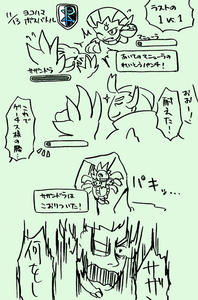 11/13
ヨコハマ
ボスバトル
ラストの
1 vs. 1
マニューラ
サザンドラ
あいての マニューラの
れいとうパンチ!
おおー!
耐えた!
これで
ゲーチス様の勝…
パキッ…
サザンドラは
こおりついた!
サザ
何を